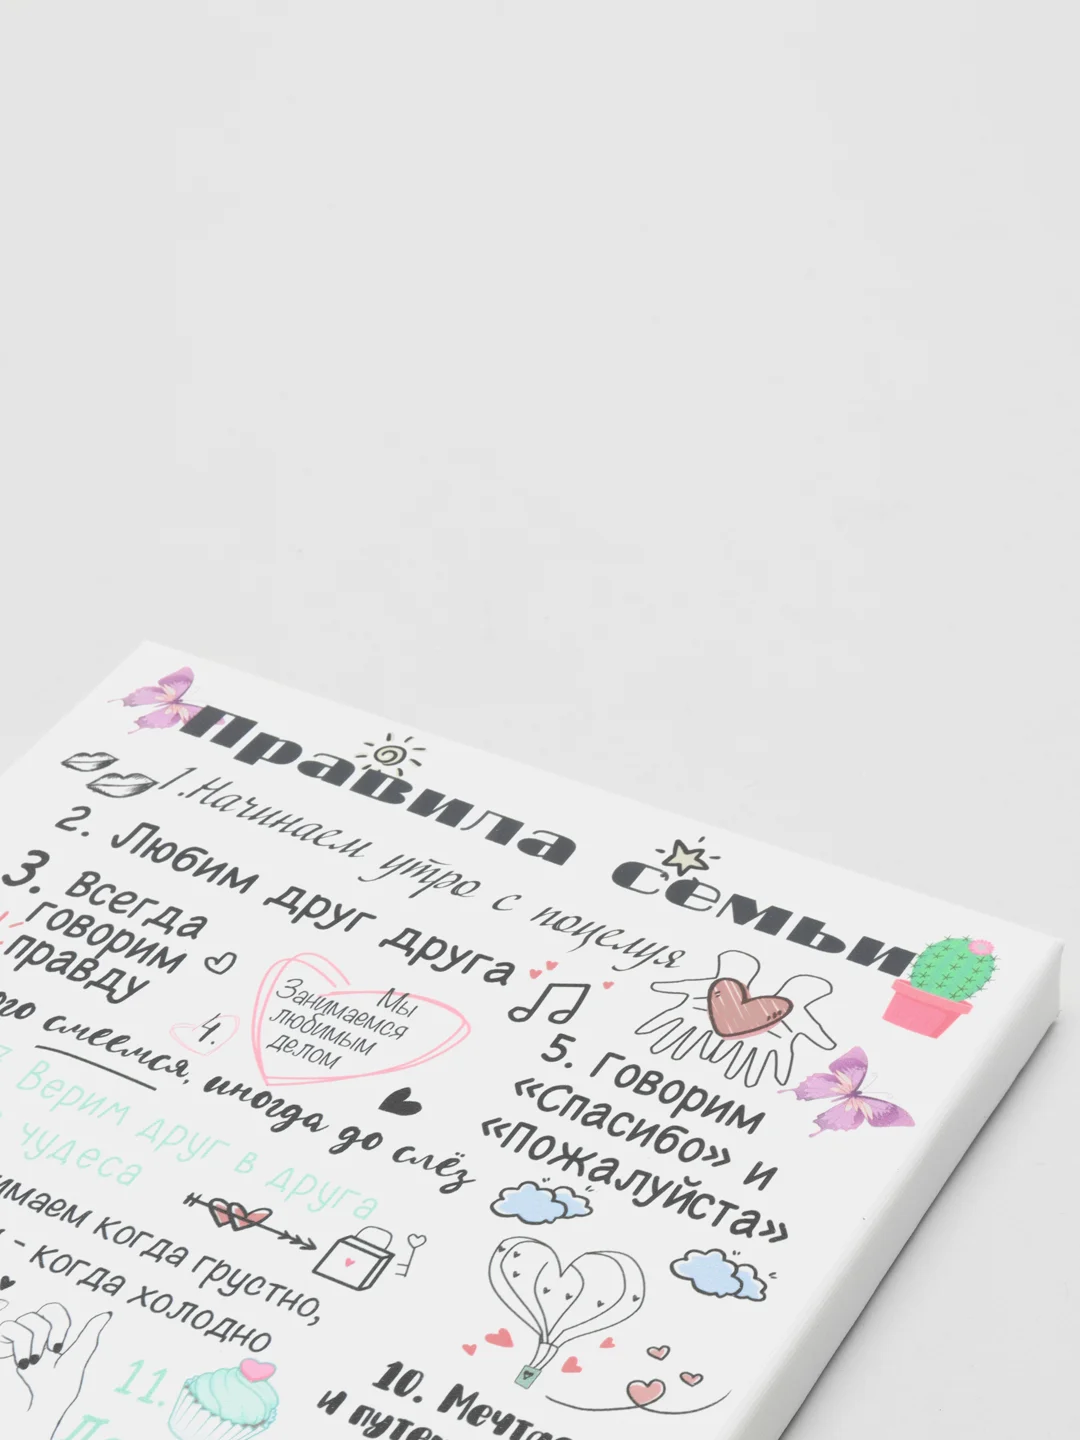 Правила семьи
1. Начинаем утро с поцелуя
2. Любим друг друга
3. Всегда
говорим
правду
4.
Мы
Занимаемся
любимым
делом
5. Говорим
«Спасибо» и
«Пожалуйста»
смеемся, иногда до слёз
Верим друг в друга
чудеса
когда грустно,
- когда холодно
10.
и
11.